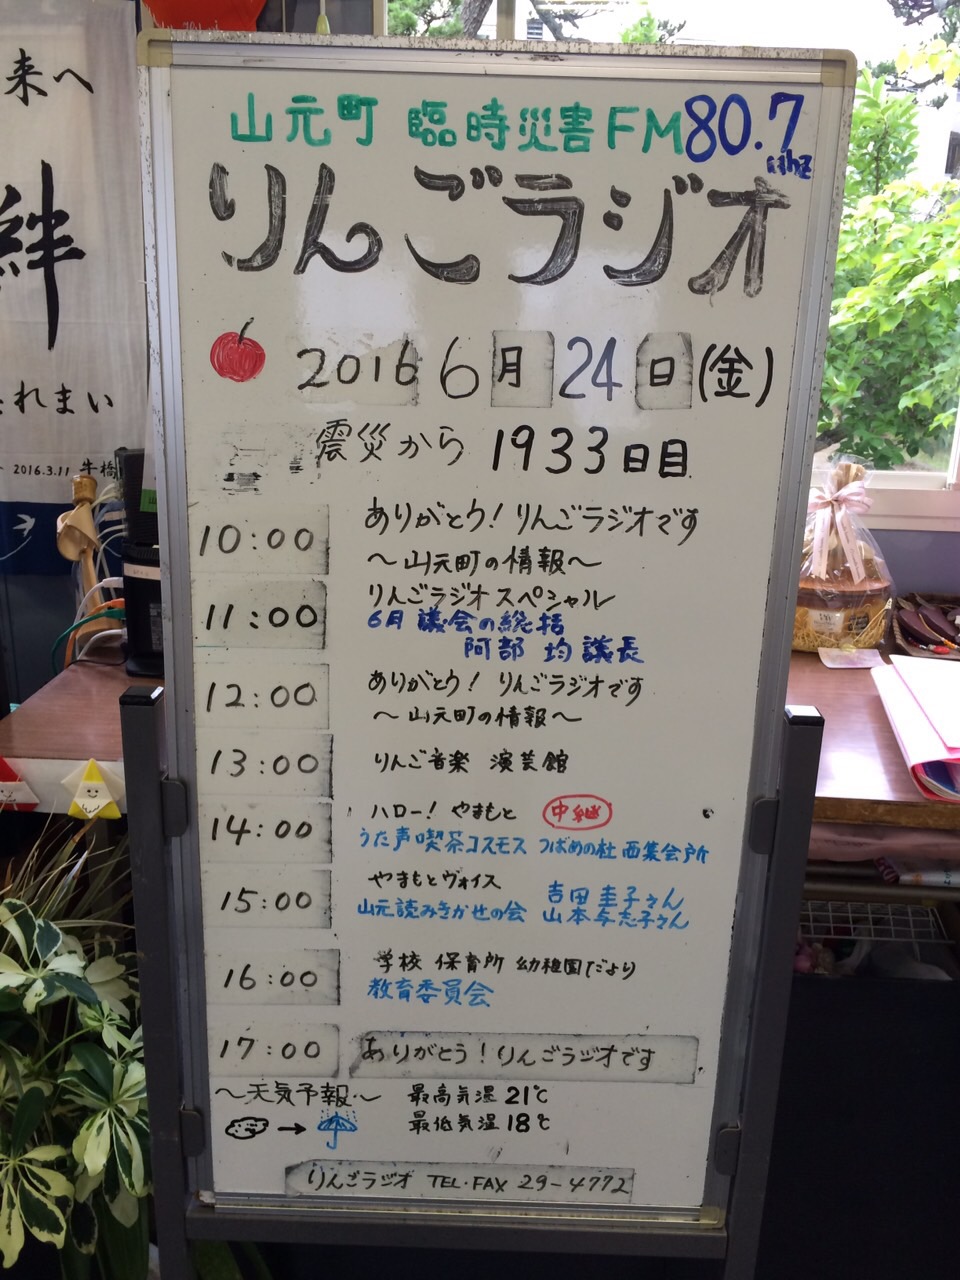 来へ
絆
れまい
2016.3.11 牛橋
山元町 臨時災害FM80.7
MHz
りんごラジオ
2016 6月24日(金)
震災から 1933日目
10:00 ありがとう! りんごラジオです
〜山元町の情報〜
11:00 りんごラジオ スペシャル
6月 議会の総括
阿部 均 議長
12:00 ありがとう! りんごラジオです
〜山元町の情報〜
13:00 りんご音楽 演芸館
14:00 ハロー! やまもと 中継
うた声喫茶コスモス つばめの杜 西集会所
15:00 やまもとヴォイス 吉田 圭子さん
山元読みきかせの会 山本与志子さん
16:00 学校 保育所 幼稚園だより
教育委員会
17:00 ありがとう! りんごラジオです
〜天気予報〜 最高気温 21℃
最低気温 18℃
りんごラジオ TEL・FAX 29-4772